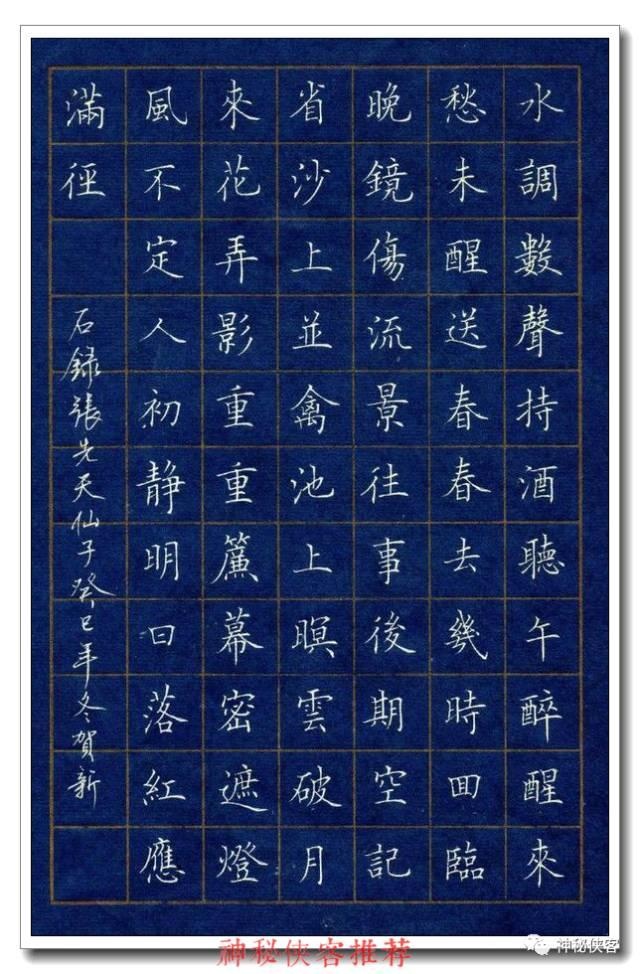 水調數聲持酒聽午醉醒來
愁未醒送春春去幾時回臨
晚鏡傷流景往事後期空記
省沙上並禽池上暝雲破月
來花弄影重重簾幕密遮燈
風不定人初静明日落紅應
滿徑
石録張先天仙子癸巳年冬賀新
神秘侠客推荐
神秘侠客